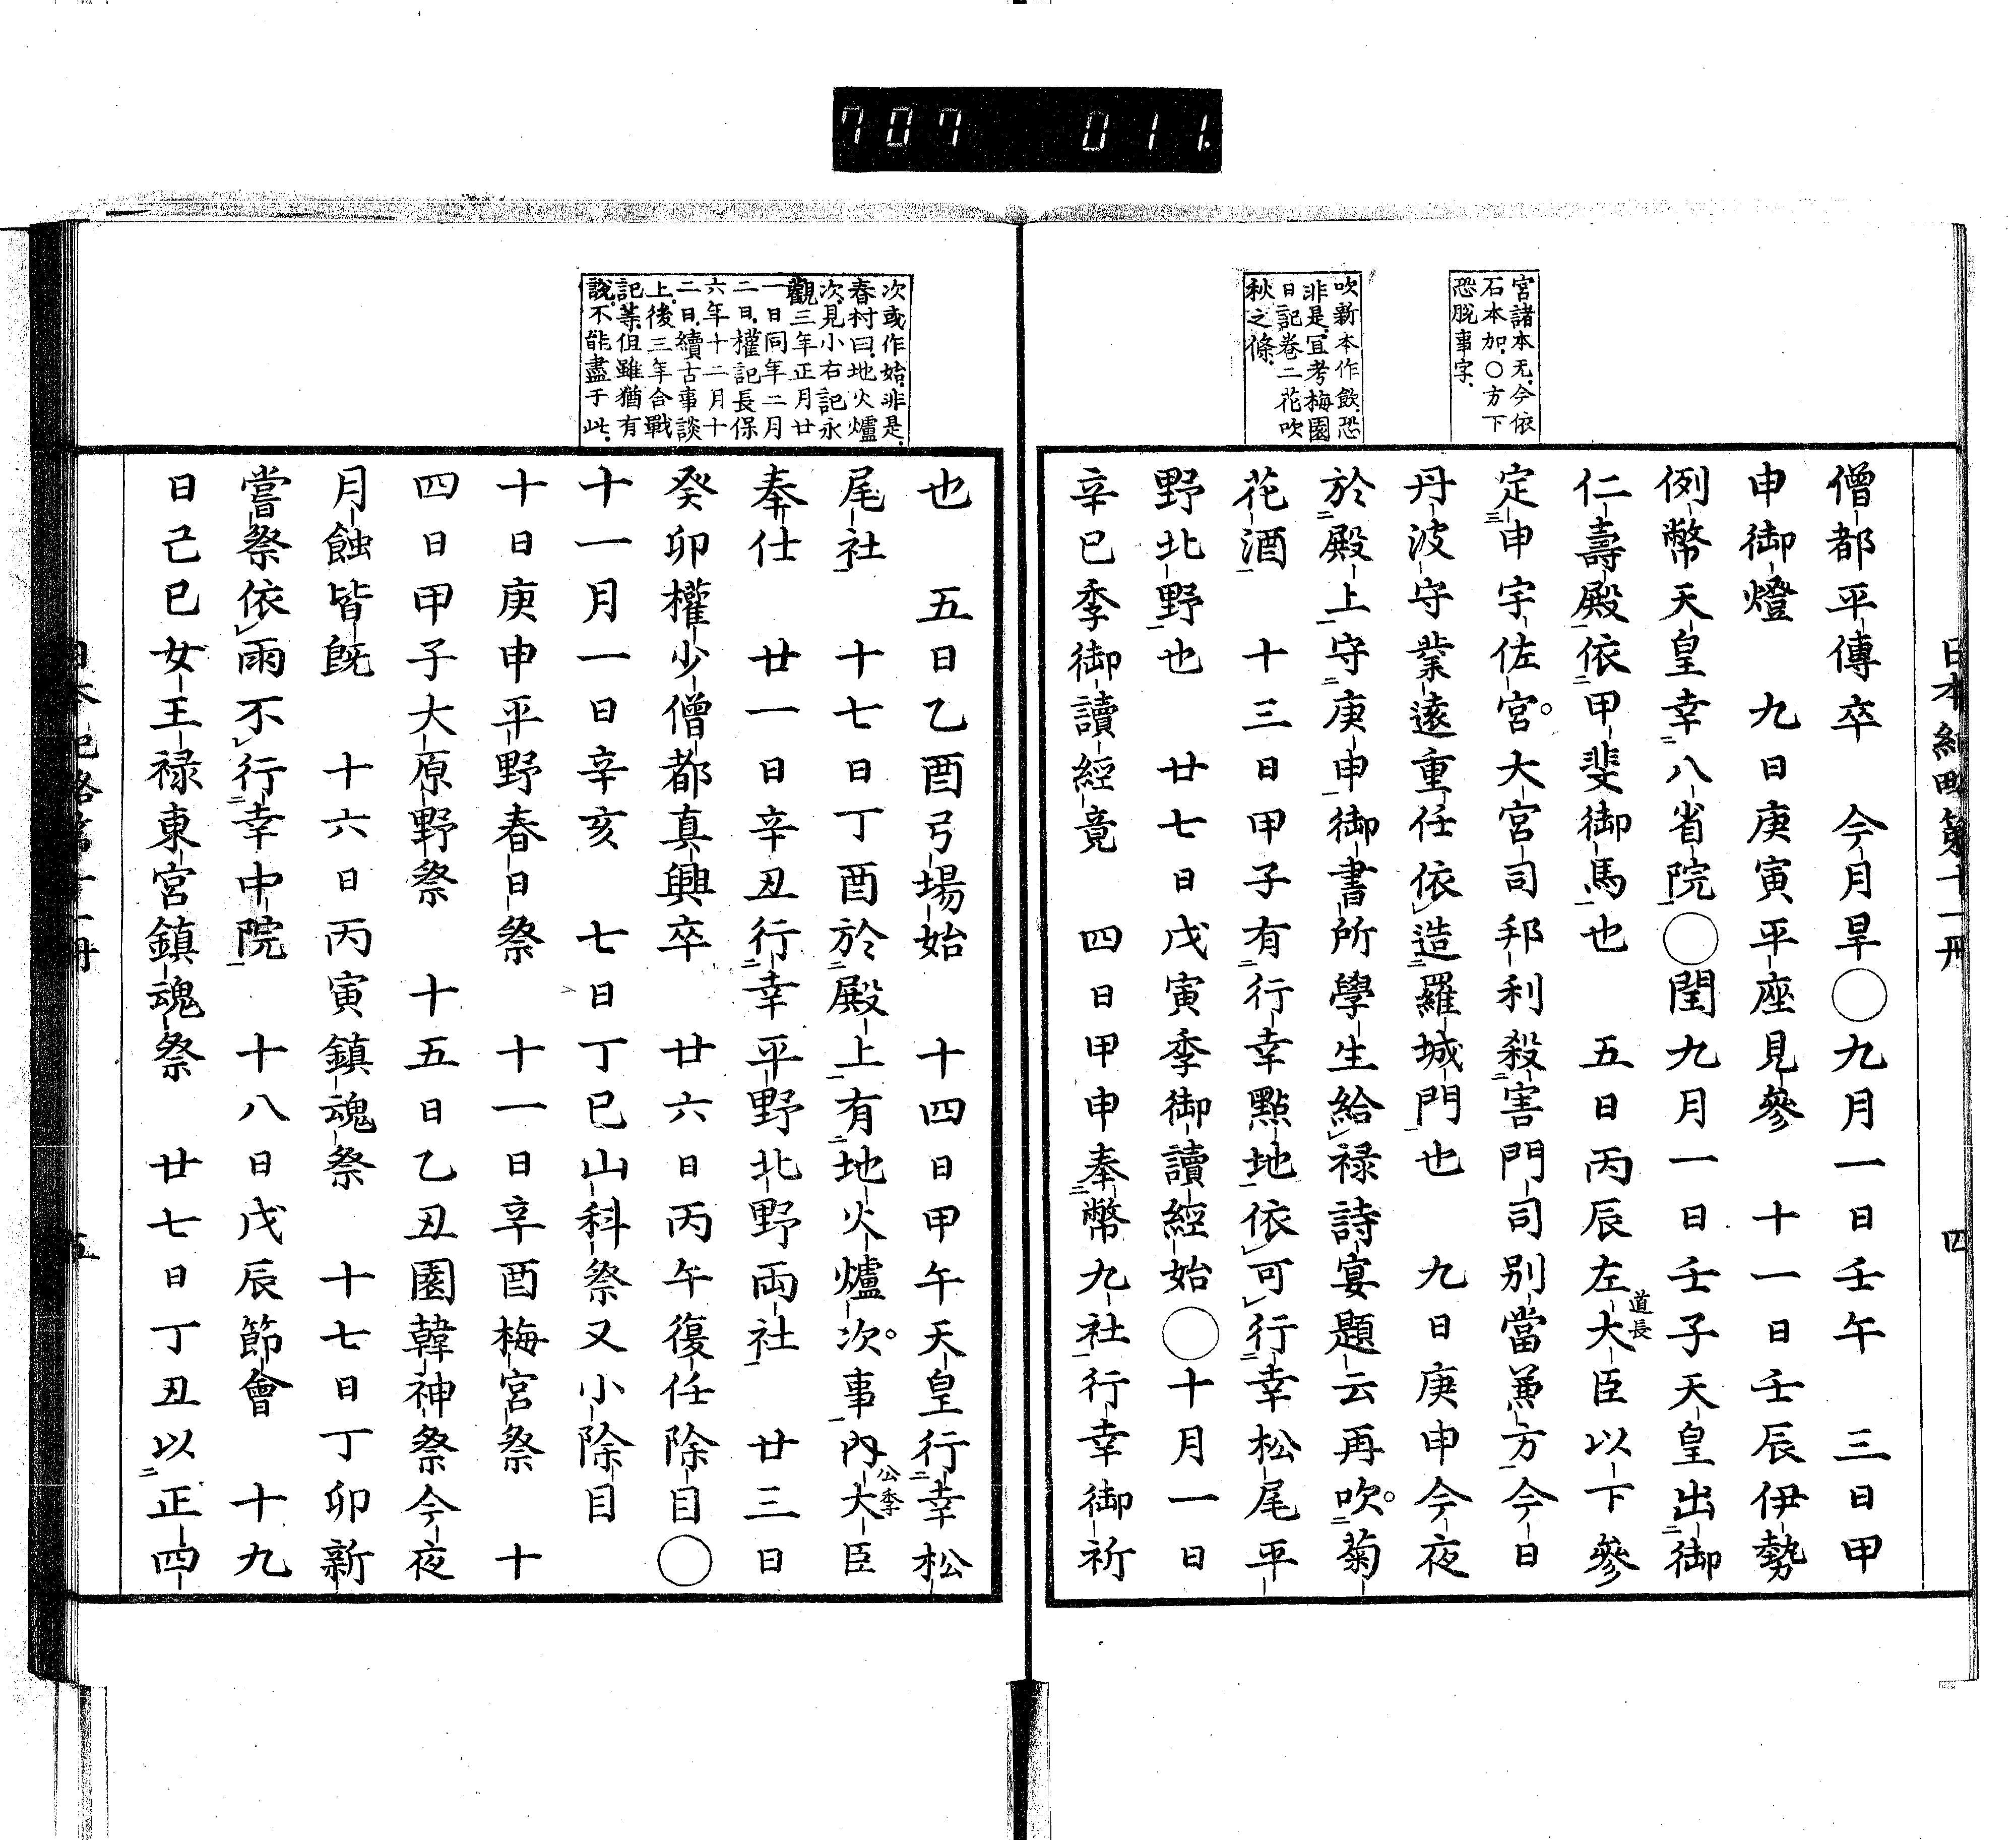 707 011.
日本紀略第十一冊 四
宮諸本无今依
石本加〇方下
恐脱事字
吹新本作飲恐
非是宜考梅園
日記卷二花吹
秋之條
僧都平傳卒　今月旱〇九月一日壬午　三日甲
申御燈　九日庚寅平座見參　十一日壬辰伊勢
例幣天皇幸八省院〇閏九月一日壬子天皇出御
仁壽殿依甲斐御馬也　五日丙辰左大臣道長以下參
定申宇佐宮大宮司邦利殺害門司別當兼方今日
丹波守業遠重任依造羅城門也　九日庚申今夜
於殿上守庚申御書所學生給禄詩宴題云再吹菊
花酒　十三日甲子有行幸點地依可行幸松尾平
野北野也　廿七日戊寅季御讀經始〇十月一日
辛巳季御讀經竟　四日甲申奉幣九社行幸御祈
次或作始非是
春村曰地火爐
次見小右記永
觀三年正月廿
一日同年二月
二日權記長保
六年十二月十
二日續古事談
上後三年合戰
記等但雖猶有
説不能盡于此
也　五日乙酉弓場始　十四日甲午天皇行幸松
尾社　十七日丁酉於殿上有地火爐次事内大臣公季
奉仕　廿一日辛丑行幸平野北野両社　廿三日
癸卯權少僧都真興卒　廿六日丙午復任除目〇
十一月一日辛亥　七日丁巳山科祭又小除目
十日庚申平野春日祭　十一日辛酉梅宮祭　十
四日甲子大原野祭　十五日乙丑園韓神祭今夜
月蝕皆既　十六日丙寅鎮魂祭　十七日丁卯新
嘗祭依雨不行幸中院　十八日戊辰節會　十九
日己巳女王禄東宮鎮魂祭　廿七日丁丑以正四
日本紀略第十一冊 五